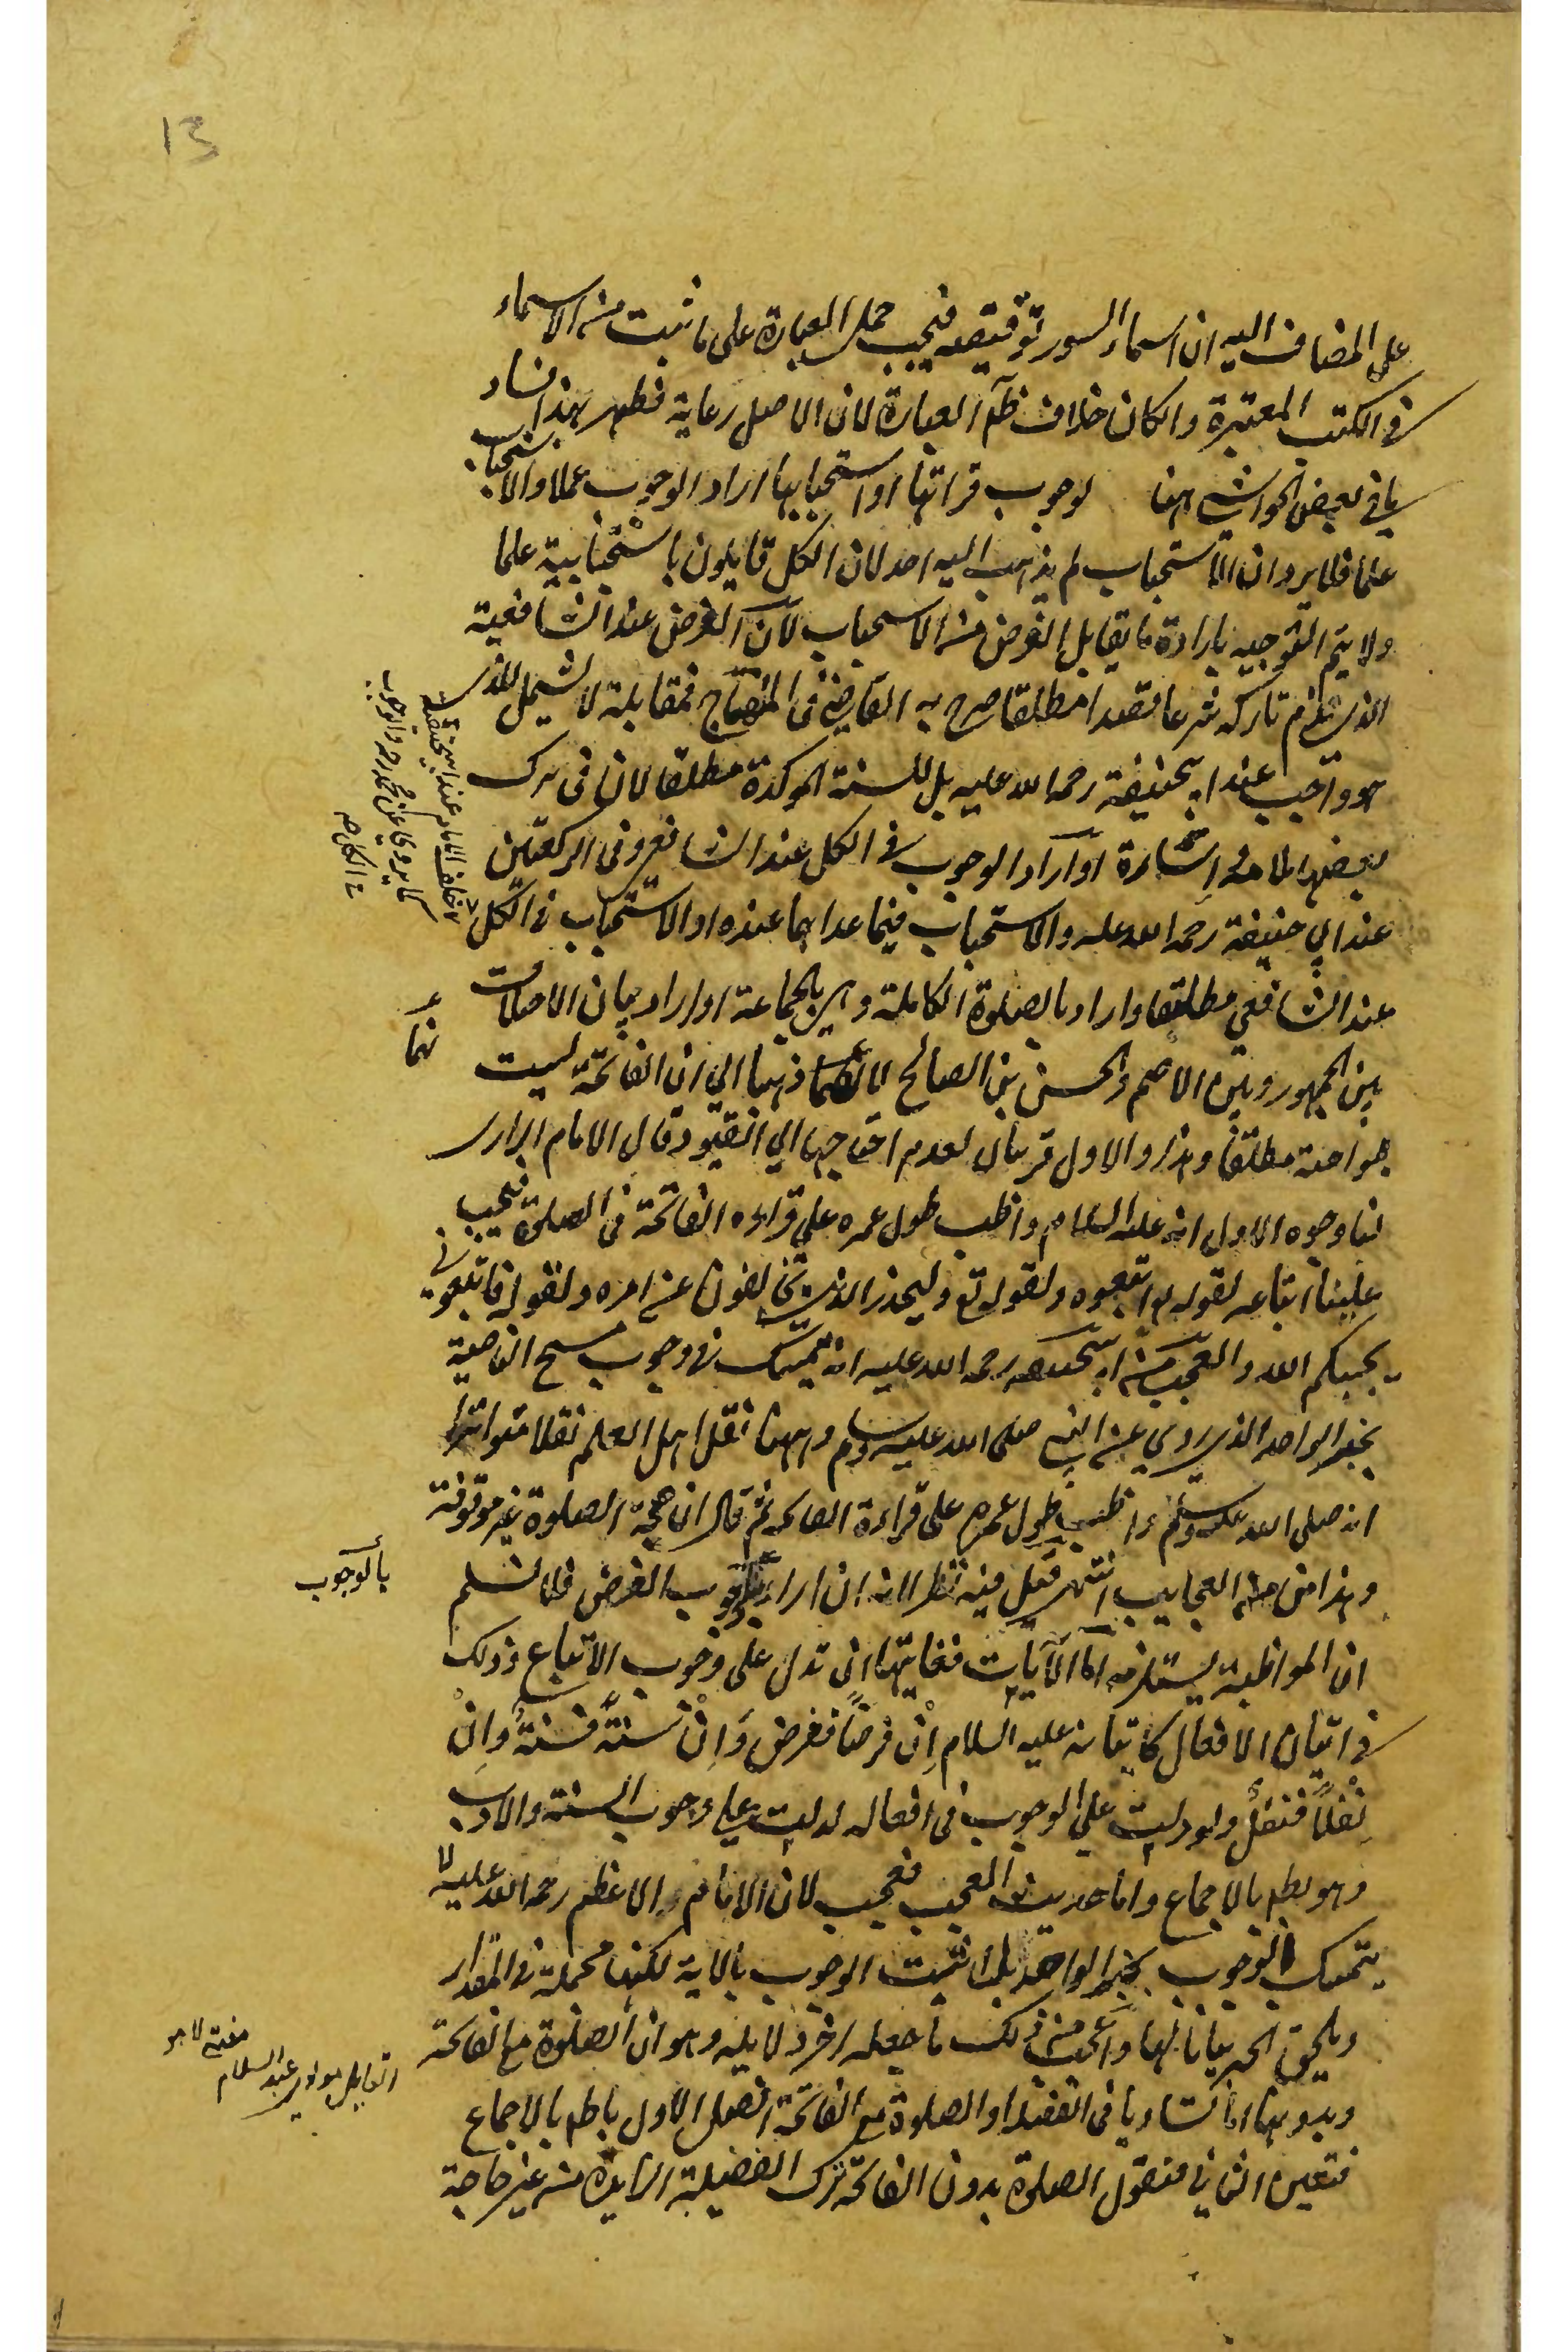 13
على المضاف اليه ان اسماء السور توقيفية فيجب حمل العبارة على ما ثبت من الاسماء
فى الكتب المعتبرة والكان خلاف ظاهر العبارة لان الاصل رعاية فظهر بهذا فساد
ما فى بعض الحواشى ههنا لوجوب قراتها او استحبابها اراد الوجوب عملا والاستحباب
علما فظاهر وان الاستحباب لم يذهب اليه احد لان الكل قايلون باستحبابية علما
ولا يتم التوجيه بارادة ما يقابل الفرض من الاستحباب لان الفرض عند الشافعية
الذى يذم تاركه شرعا قصدا مطلقا صرح به القاضى فى المنهاج فمقابلة لا يشمل للذى
هو واجب عند ابيحنيفة رحمه الله عليه بل للسنة الموكدة مطلقا لان فى ترك
بعضها ملامة او اراد الوجوب فى الكل عند الشافعى وفى الركعتين
عند ابي حنيفة رحمه الله عليه والاستحباب فيما عداهما عنده او الاستحباب فى الكل
عند الشافعي مطلقا واراد بالصلوة الكاملة وهى بالجماعة او اراد بيان الاختلاف
بين الجمهور وبين الاصم والحسن بن الصالح ذهبا الي ان الفاتحة ليست
بواجبة مطلقا وهذا والاول قريبان لعدم احتياجهما الي القيود قال الامام الرازى
لنا وجوه الاول انه عليه السلام واظب طول عمره علي قراءة الفاتحة فى الصلوة فيجب
علينا اتباعه لقوله تع واتبعوه ولقوله تع وليحذر الذين يخالفون عن امره ولقوله فاتبعونى
يحببكم الله والعجب من ابيحنيفه رحمه الله عليه انه تمسك فى وجوب مسح الناصية
بخبر الواحد الذى روي عن النبى صلى الله عليه وسلم وههنا نقل اهل العلم نقلا متواترا
انه صلى الله عليه وسلم واظب طول عمره على قراءة الفاتحه ثم قال ان صحة الصلوة غير موقوفة
وهذا من العجايب انتهى قيل فيه نظر لانه ان اراد بالوجوب الفرض فلا نسلم
ان المواظبة يستلزمه اما الآيات فغايتها ان تدل على وجوب الاتباع وذلك
فى اتيان الافعال كاتيانه عليه السلام اِنْ فرضًا ففرض وَاِنْ سنةً فسنةٌ وَاِنْ
نفلًا فنفلٌ ولو دلت علي الوجوب فى افعاله لدلت علي وجوب السنة والادب
وهو بط بالاجماع واما حديث العجب فعجيب لان الامام الاعظم رحمه الله عليه لا
يتمسك فى الوجوب بخبر الواحد بل اثبت الوجوب بالاية لكنها مجملة فى المقدار
ويلحق الخبر بيانا لها واعجب من ذلك ما جعله اخر دلايله وهو ان الصلوة مع الفاتحة
وبدونها اما تساويا فى الفضل او الصلوة مع الفاتحة افضل الاول باطل بالاجماع
فتعين الثانى فنقول الصلوة بدون الفاتحة ترك الفضيلة الزايدة من غير حاجة
خلف الامام عند ابيحنيفة
كما يروى عن محمد رحه والوجوب
بالوجوب
القايل مولوى عبد السلام
مفتى لاهو